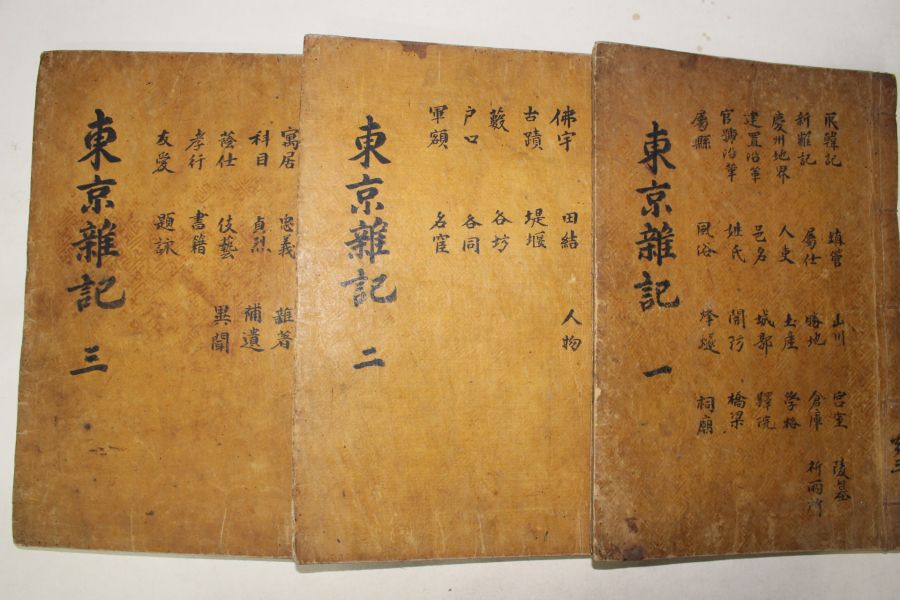 辰韓記 鎮管 山川 宮室 陵墓
新羅記 屬仕 勝地 倉庫 祈雨所
慶州地界 人吏 土産 學校
建置沿革 邑名 城郭 驛院
官號沿革 姓氏 關防 橋梁
屬縣 風俗 烽燧 祠廟
東京雜記 一
佛宇 田結 人物
古蹟 堤堰
藪 各坊
戶口 各同
軍額 名宦
東京雜記 二
寓居 忠義 雜著
科目 貞烈 補遺
蔭仕 伎藝 異聞
孝行 書籍
友愛 題詠
東京雜記 三